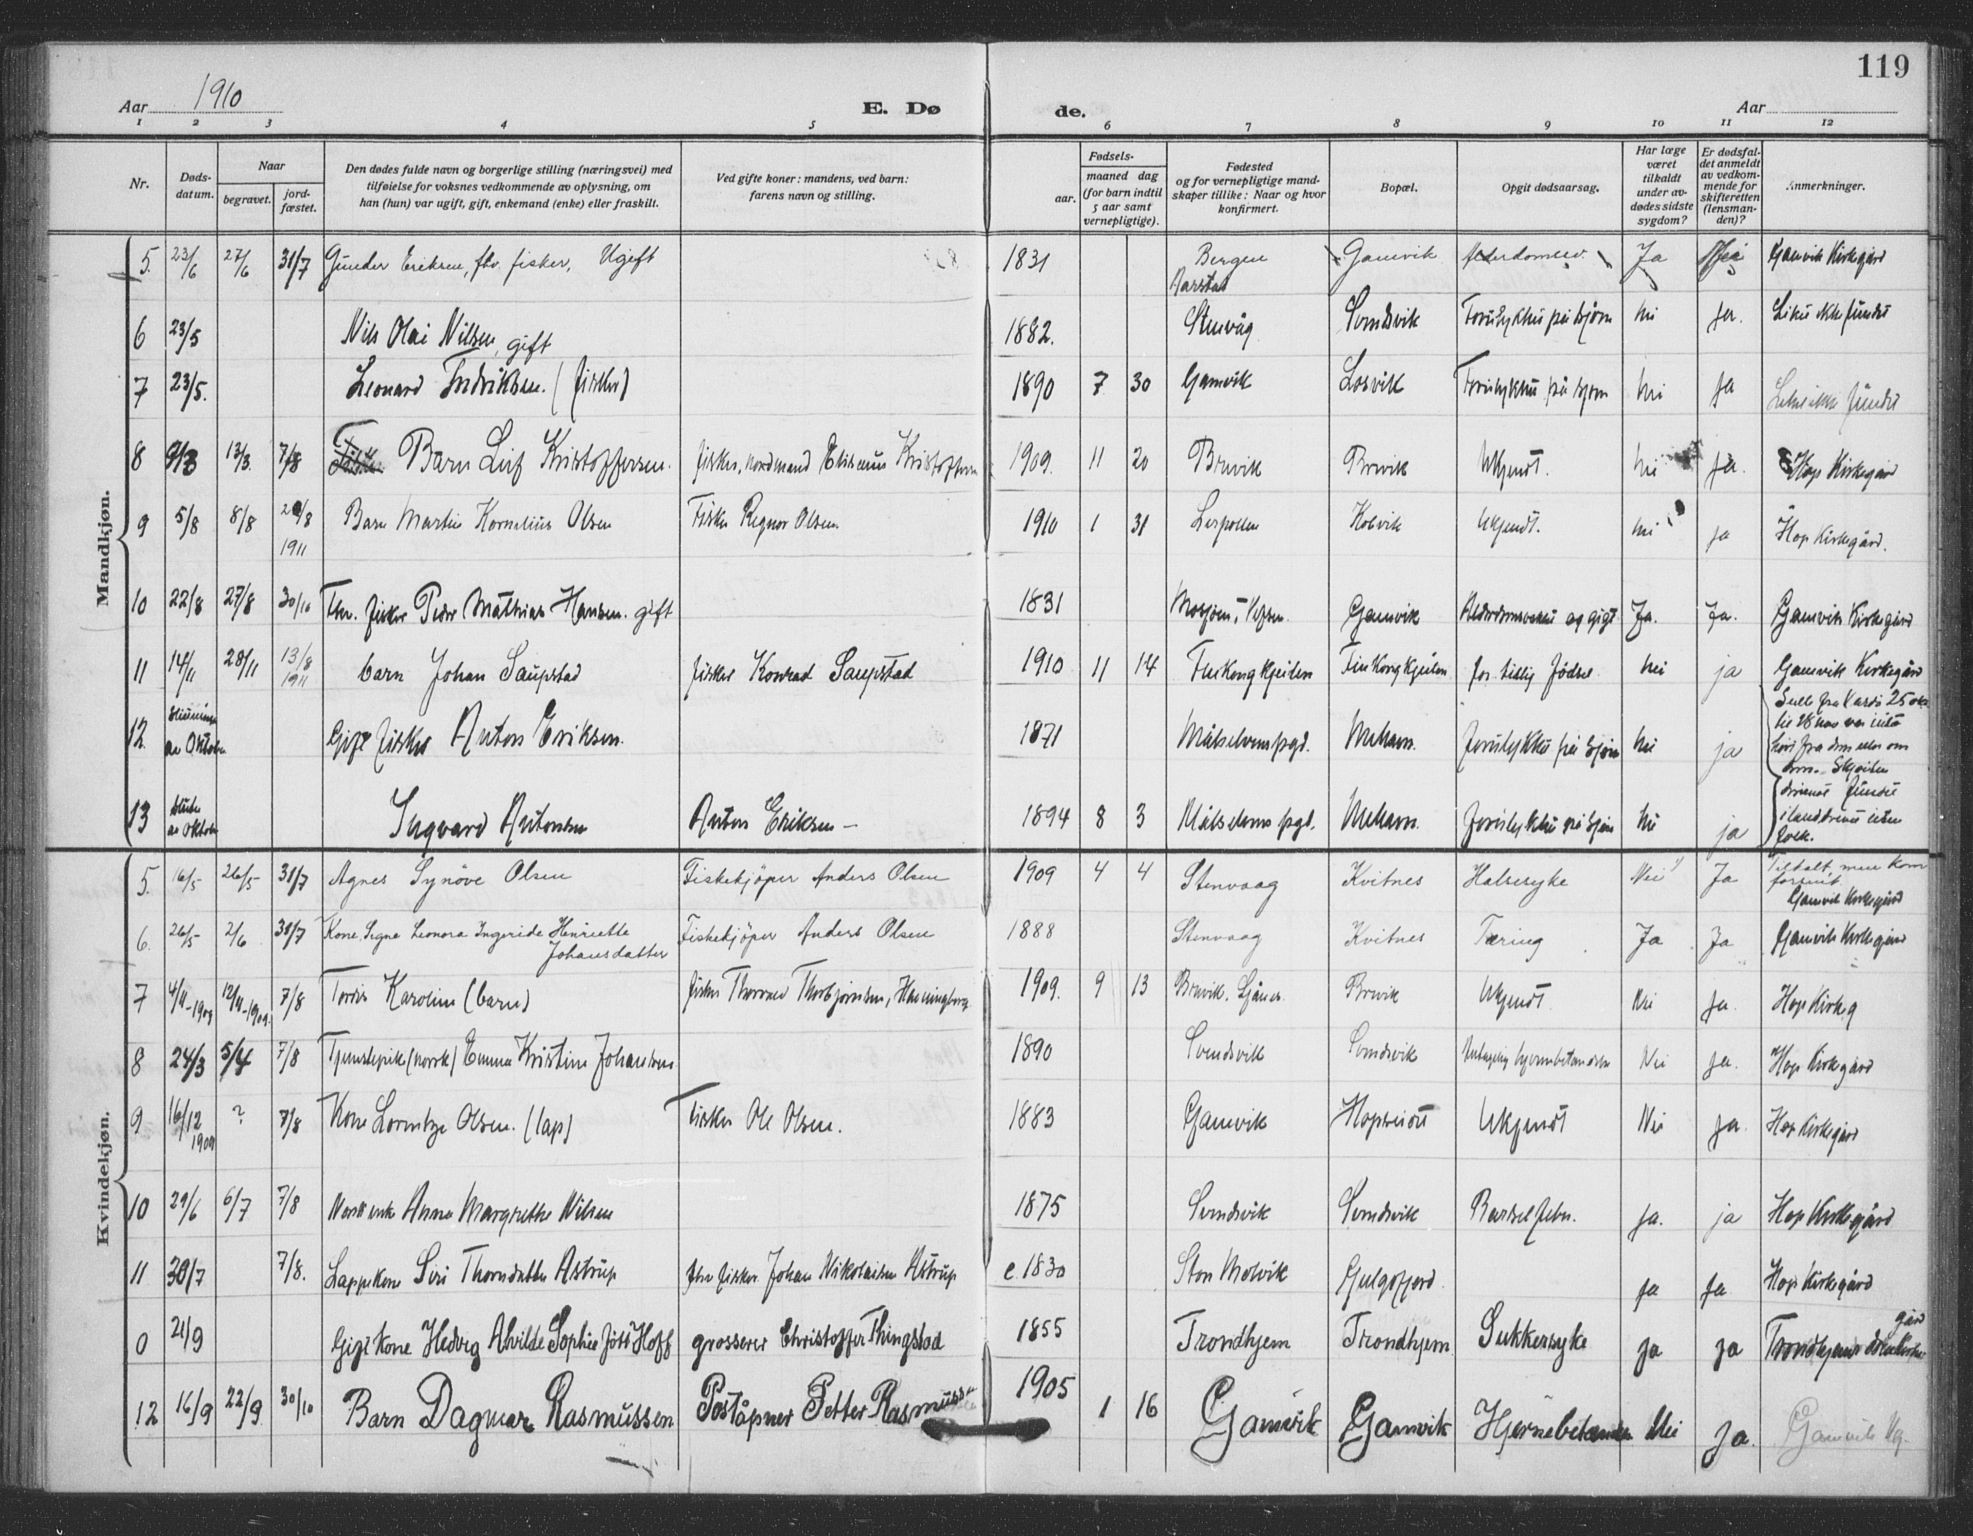 119
Aar 1910
E. Dø
de.
Aar
1 2 3 4 5 6 7 8 9 10 11 12
Nr.
Døds-
datum.
Naar
begravet.
jord-
fæstet.
Den dødes fulde navn og borgerlige stilling (næringsvei) med
tilføielse for voksnes vedkommende av oplysning, om
han (hun) var ugift, gift, enkemand (enke) eller fraskilt.
Ved gifte koner: mandens, ved barn:
farens navn og stilling.
Fødsels-
aar.
maaned dag
(for barn indtil
5 aar samt
vernepligtige).
Fødested
og for vernepligtige mand-
skaper tillike: Naar og hvor
konfirmert.
Bopæl.
Opgit dødsaarsag.
Har læge
været
tilkaldt
under av-
dødes sidste
sygdom?
Er dødsfal-
det anmeldt
av vedkom-
mende for
skifteretten
(lensman-
den)?
Anmerkninger.
Mandkjøn.
5. 23/6 27/6 31/7 Gunder Eriksen, fhv. fisker, Ugift 1831 Bergen Gamvik Ja Gamvik Kirkegård
Aarstad
6 23/5 Nils Olai Nilsen, gift 1882. Stenvåg Sandsvik Forulykket på sjøen nei ja. Liket ikke fundet
7 23/5. Leonard Fredriksen. (fisker) 1890 7 30 Gamvik Losvik Forulykket på sjøen nei ja Liket ikke fundet
8 9/3 13/3 7/8 Barn Leif Kristoffersen. fisker, nordmand Kristoffersen 1909. 11 20 Brevik Brevik Ukjendt. nei ja. Hop Kirkegård
9 5/8 8/8 20/8 1911 Barn Martin Kornelius Olsen Fisker Regnor Olsen. 1910 1 31 Lerpollen Kobvik Ukjendt. nei ja Hop Kirkegård.
10 22/8 27/8 30/10 Fhv. fisker Peder Mathias Hansen. gift 1831 Mosjøen, Vefsen. Gamvik Alderdomssvakhet og gigt Ja. Ja. Gamvik Kirkegård
11 14/11 28/11 13/8 1911 barn Johan Saupstad fisker Konrad Saupstad 1910 11 14 Finkongkjeilen Finkongkjeilen for tidlig fødsel nei ja Gamvik Kirkegård
12. av Oktober Gift fisker Anton Eriksen. 1871 Målselvens pgd. Mehavn. forulykket på sjøen nei ja
Seilt fra Vardø 25 okt
13 av Oktober Ingvard Antonsen Anton Eriksen – 1894 8 3 Målselvens pgd. Mehavn. forulykket på sjøen nei ja
folk.
Kvindekjøn.
5. 16/5 26/5 31/7 Agnes Synöve Olsen Fiskekjöper Anders Olsen 1909 4 4 Stenvaag Kvitnes Halsesyke Nei Ja Tilkalt, men kom
forsent.
Gamvik Kirkegård
6. 26/5 2/6 31/7 Kone Signe Leonora Ingeride Henriette
Johansdatter Fiskekjöper Anders Olsen 1888 Stenvaag Kvitnes Tæring Ja Ja Gamvik Kirkegård
7 4/11-1909 12/11-1909. 7/8 Tordis Karoline (barn) fisker Thorbjørnsen, 1909. 9 13 Brevik. Brevik Ukjendt Nei ja. Hop Kirkeg
8 24/3 5/4 7/8 Tjenestepike (norsk) Emma Kristine Johansen 1890 Sandsvik Sandsvik Nei ja. Hop Kirkegård
9 16/12 1909 ? 7/8 Kone Olsen. (lap) Fisker Ole Olsen. 1883 Gamvik Hopseidet Ukjendt Nei ja. Hop Kirkegård
10 29/6 6/7 7/8 Anna Margrethe Nilsen 1875 Sandsvik Sandsvik Barselfeber. ja. ja Hop Kirkegård
11 30/7 7/8. Lappekone Siri Thorsdatter Astrup fhv fisker Johan Nikolaisen Astrup c. 1830 Store Molvik Gulgofjord. ja ja Hop Kirkegård
0 21/9 Gift kone Hedvig Alvilde Sophie Hoff grosserer Christoffer Thingstad 1855 Trondhjem Trondhjem Sukkersyke ja ja
12 16/9 22/9 30/10 Barn Dagmar Rasmussen Poståpner Petter Rasmussen 1905 1 16 Gamvik Gamvik Hjernebetændelse Nei Ja. Gamvik Kg.